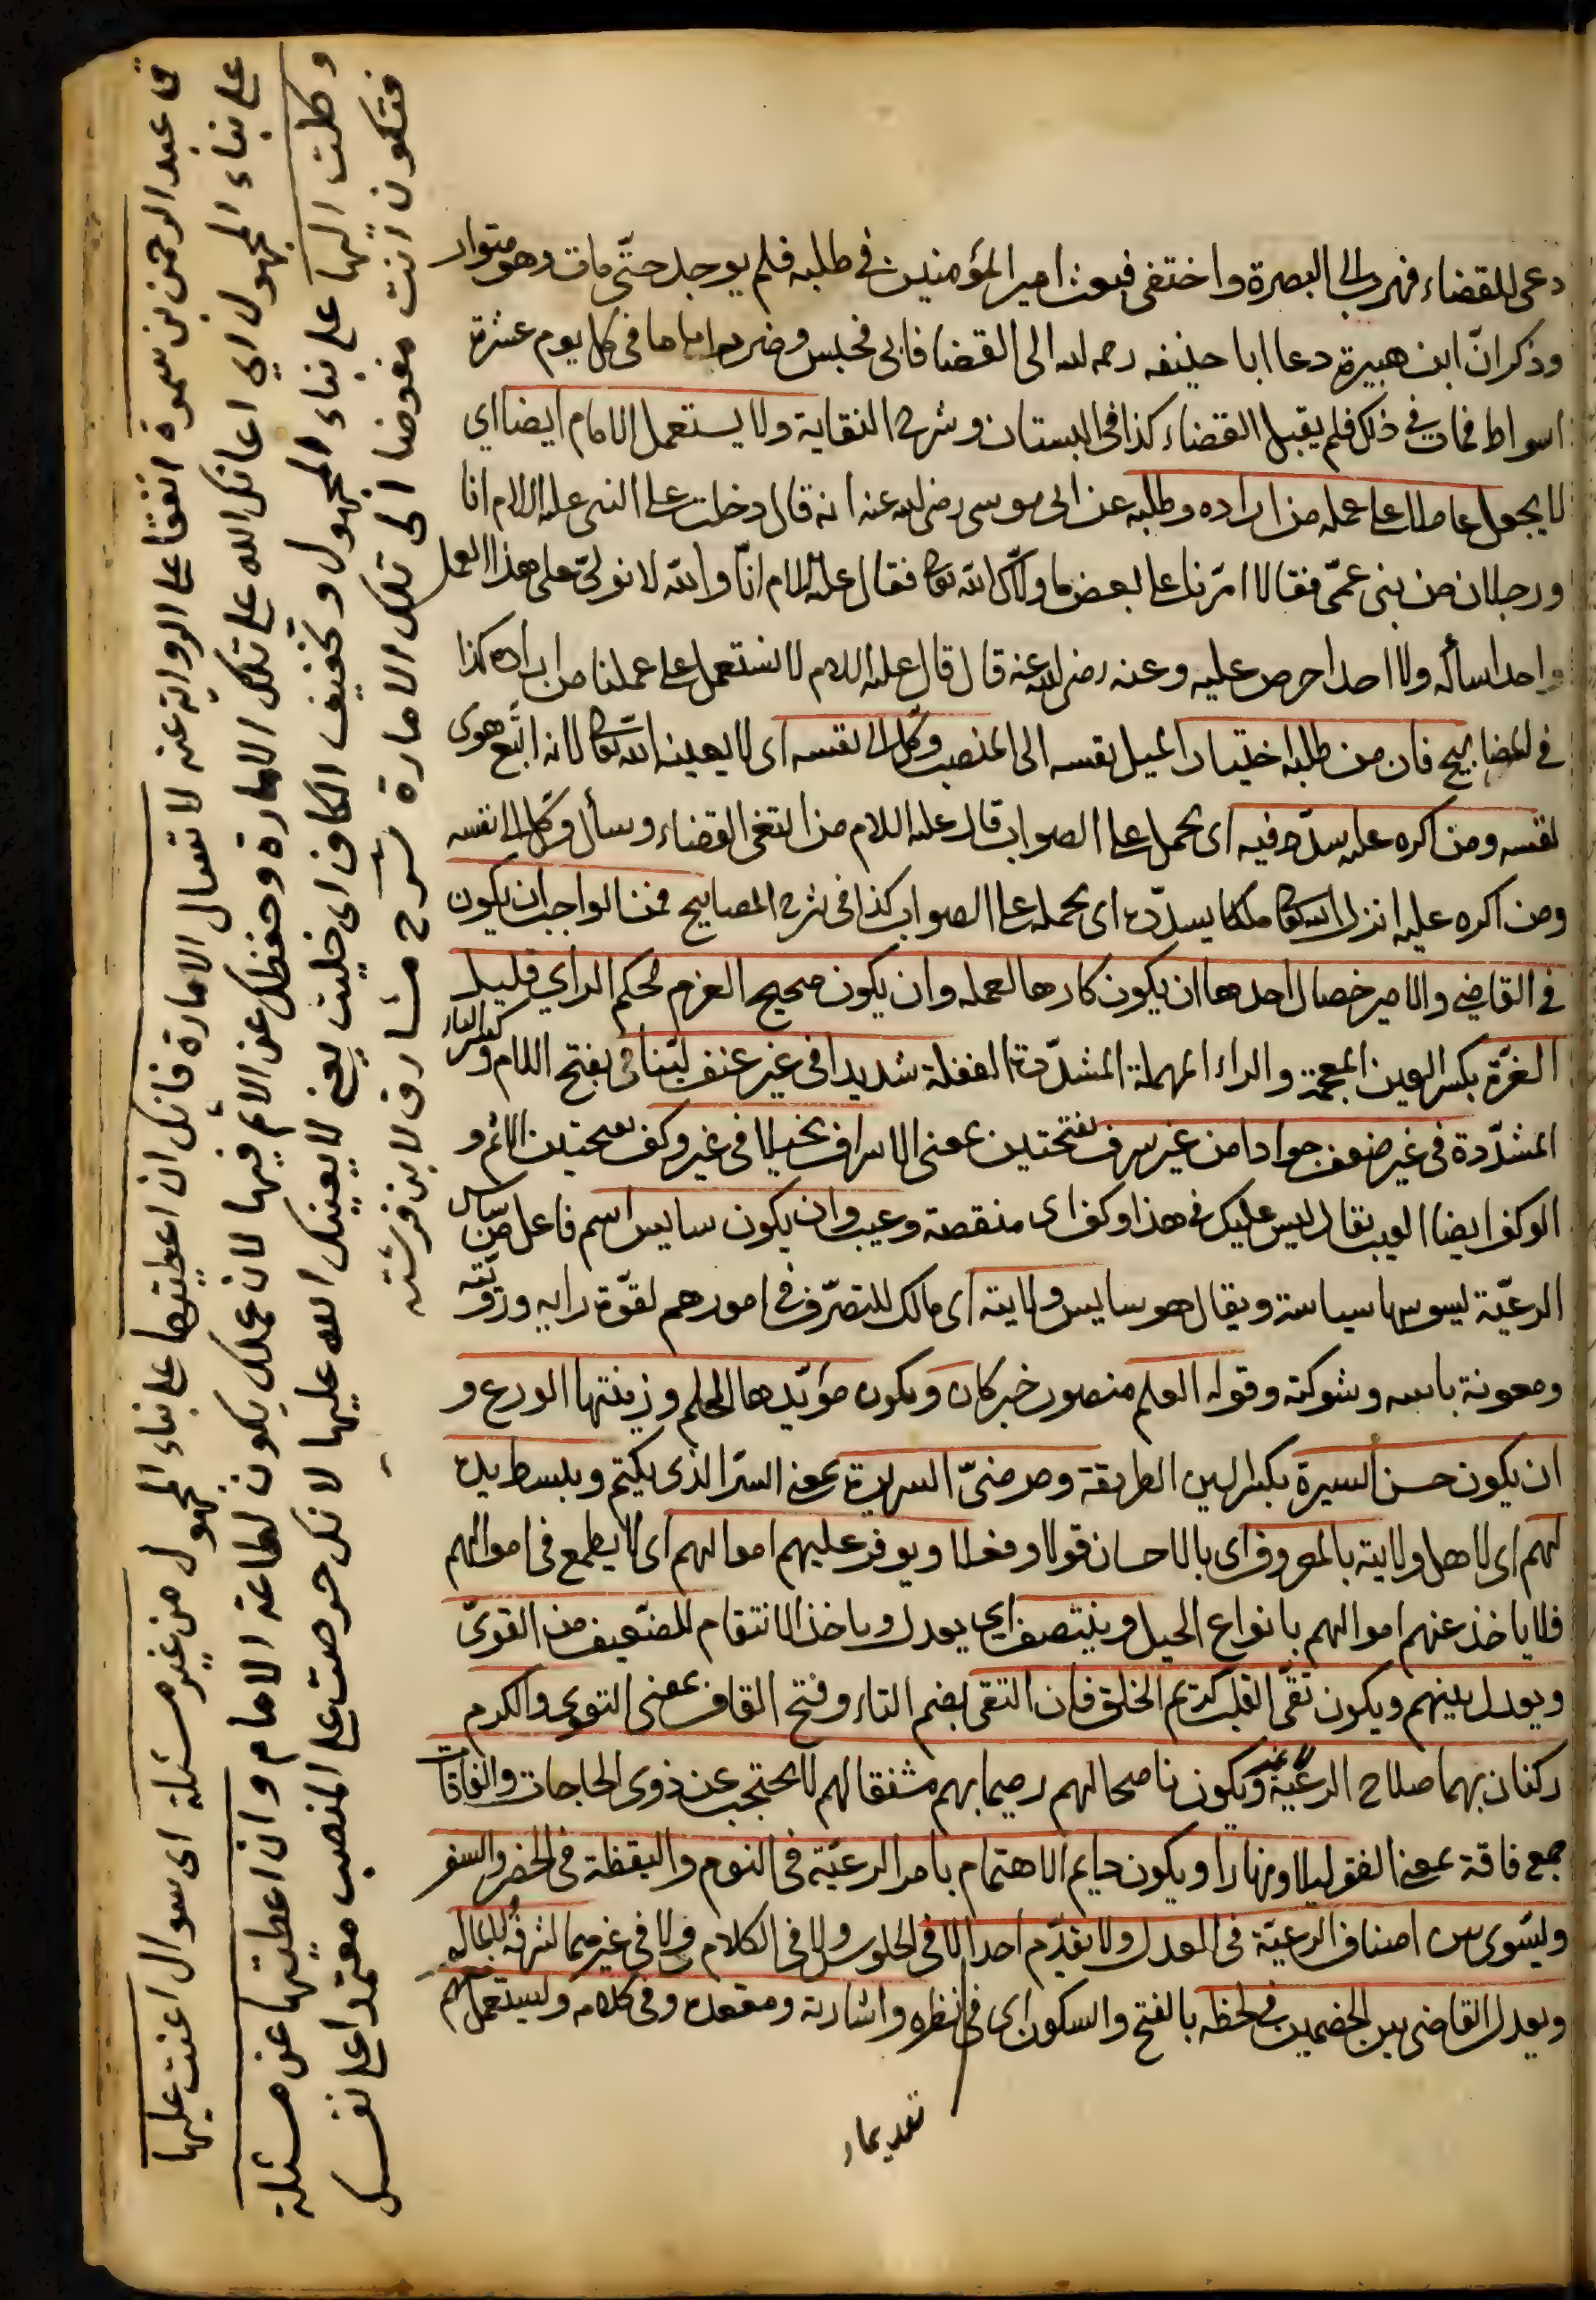 دعى للقضاء فهرب الى البصرة واختفى فبعث امير المؤمنين في طلبه فلم يوجد حتّى مات وهو متوار
وذكر انّ ابن هبيرة دعا ابا حنيفه رحمه الله الى القضا فابى فحبس وضربه اياما في كل يوم عشرة
اسواط فمات في ذلك فلم يقبل القضاء كذا في البستان وشرح النقاية ولا يستعمل الامام ايضا اي
لا يجعل عاملا على عمله من اراده وطلبه عن ابى موسى رضى الله عنه انه قال دخلت على النبى عليه السلام انا
ورجلان من بنى عمّى فقالا امّرنا على بعض ما ولّاك الله تعالى فقال عليه السلام انّا والله لا نولّى على هذا العمل
واحدا سأله ولا احدا حرص عليه وعنه رضى الله عنه قال قال عليه السلام لا نستعمل على عملنا من اراده كذا
في المصابيح فان من طلبه اختيارا لميل نفسه الى المنصب وكّل الى نفسه اى لا يعينه الله تعالى لانه اتّبع هوى
نفسه ومن اكره عليه سدّد فيه اى يحمل على الصواب قال عليه السلام من ابتغى القضاء وسأل وكّل الى نفسه
ومن اكره عليه انزل الله تعالى ملكا يسدّده اى يحمله على الصواب كذا في شرح المصابيح فمن الواجب ان يكون
في القاضي والامير خصال احدها ان يكون كارها لعمله وان يكون صحيح العزم محكم الراي قليل
الغرّة بكسر الغين المعجمة والراء المهملة المشدّدة الغفلة شديدا في غير عنف ليّنا بفتح اللام وكسر الياء
المشدّدة في غير ضعف جوادا من غير سرف بفتحتين بمعنى الاسراف بخيلا في غير وكف بفتحتين الاثم و
الوكف ايضا العيب يقال ليس عليك في هذا وكف اى منقصة وعيب وان يكون سايس اسم فاعل من ساس
الرعيّة يسوسها سياسة ويقال هو سايس ولايته اى مالك للتصرّف في امورهم لقوّة رايه ورويّته
ومعونة باسه وشوكته وقوله العلم منصور خبر كان ويكون مؤيّدها الحلم وزينتها الورع و
ان يكون حسن السيرة بكسر السين الطريقة ومرضىّ السريرة بمعنى السرّ الذى يكتم ويبسط يده
لهم اى لاهل ولايته بالمعروف اى بالاحسان قولا وفعلا ويوفر عليهم اموالهم اى لا يطمع في اموالهم
فلا ياخذ عنهم اموالهم بانواع الحيل وينتصف اي يعدل وياخذ الانتقام للضّعيف من القوىّ
ويعدل بينهم ويكون تقىّ القلب كريم الخلق فان التقى بضم التاء وفتح القاف بمعنى التقوى والكرم
ركنان بهما صلاح الرعيّة ويكون ناصحا لهم رحيما بهم مشفقا لهم لا يحتجب عن ذوى الحاجات والفاقات
جمع فاقة بمعنى الفقر ليلا ونهارا ويكون دايم الاهتمام بامر الرعيّة في النوم واليقظة في الحضر والسفر
ويسّوى بين اصناف الرعيّة في العدل ولا يقدّم احدا لا في الجلوس ولا في الكلام ولا في غيرهما لشرفه
ويعدل القاضى بين الخصمين في لحظه بالفتح والسكون اى في نظره واشارته ومقعده وفى كلامه ويستعمل
تقديما
ق عبد الرحمن بن سمرة اتفقا على الرواية عنه لا تسأل الامارة فانك ان اعطيتها على بناء المجهول من غير مسئلة اى سوال اعنت عليها
على بناء المجهول اي اعانك الله على تلك الامارة وحفظك عن الاثم فيها لان عملك يكون لطاعة الامام وان اعطيتها عن مسئلة
وكلت اليها على بناء المجهول وتخفيف الكاف اى خليت يعنى لا يعينك الله عليها لانك حرصت على المنصب معتمدا على نفسك
فتكون انت مفوضا الى تلك الامارة شرح مشارق لابن فرشته